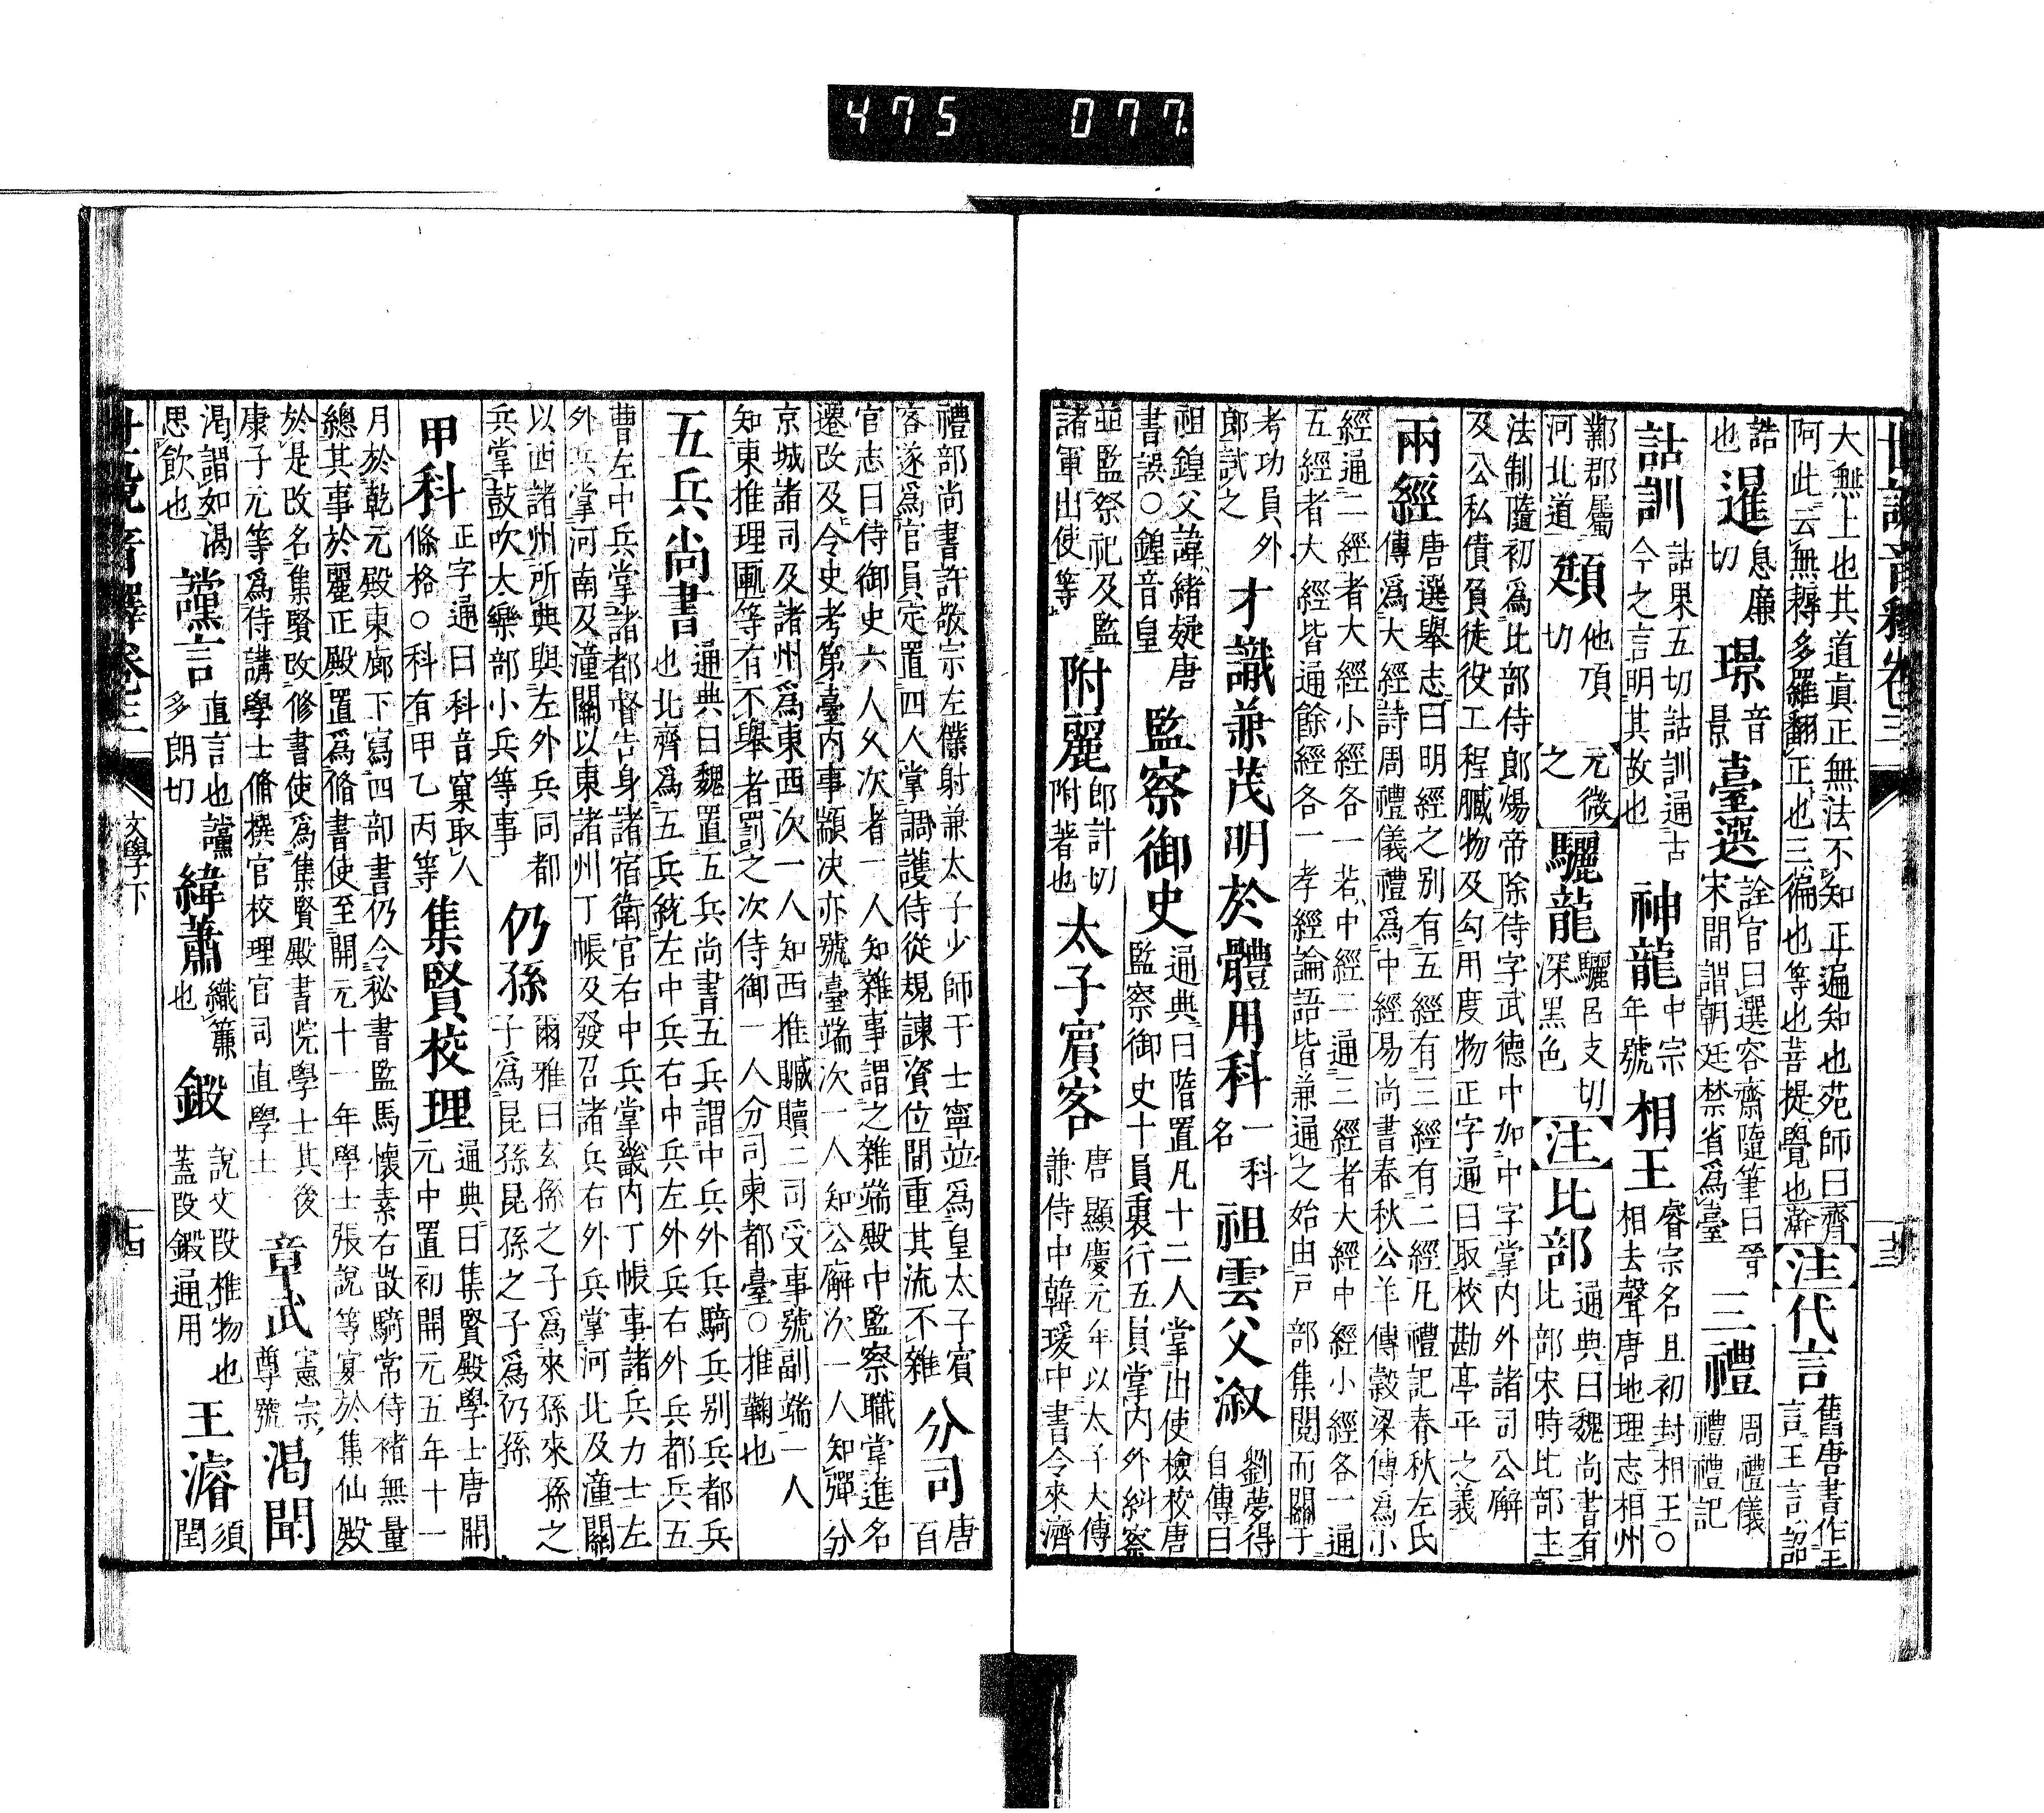 世說音釋卷三 十三
大無上也其道眞正無法不知正遍知也苑師曰齊阿此云無耨多羅翻正也三徧也等也菩提覺也 注 代言 舊唐書作王言王言詔
誥也 暹 息廉切 璟 音景 臺選 詮官曰選容齋隨筆曰晉宋間謂朝廷禁省爲臺 三禮 周禮儀禮禮記
詁訓 詁果五切詁訓通古今之言明其故也 神龍 中宗年號 相王 睿宗名旦初封相王○相去聲唐地理志相州
鄴郡屬河北道 頲 他頂切 元微之 驪龍 驪呂支切深黑色 注 比部 通典曰魏尚書有比部宋時比部主
法制隨初爲比部侍郎煬帝除侍字武德中加中字掌内外諸司公廨及公私債負徒役工程贓物及勾用度物正字通曰取校勘亭平之義
兩經 唐選舉志曰明經之别有五經有三經有二經凡禮記春秋左氏傳爲大經詩周禮儀禮爲中經易尚書春秋公羊傳穀梁傳爲小
經通二經者大經小經各一若中經二通三經者大經中經小經各一通五經者大經皆通餘經各一孝經論語皆兼通之始由戸部集閱而關于
考功員外郎試之 才識兼茂明於體用科 一科名 祖雲父溆 劉夢得自傳曰
祖鍠父諱緒疑唐書誤○鍠音皇 監察御史 通典曰隋置凡十二人掌出使檢校唐監察御史十員裏行五員掌内外糾察
並監祭祀及監諸軍出使等 附麗 郎計切附著也 太子賓客 唐顯慶元年以太子太傅兼侍中韓瑗中書令來濟
禮部尚書許敬宗左僕射兼太子少師于士寧並爲皇太子賓客遂爲官員定置四人掌調護侍從規諫資位間重其流不雜 分司 唐百
官志曰侍御史六人久次者一人知雜事謂之雜端殿中監察職掌進名遷改及令史考第臺内事顓决亦號臺端次一人知公廨次一人知彈分
京城諸司及諸州爲東西次一人知西推贓贖二司受事號副端一人知東推理匭等有不舉者罰之次侍御一人分司東都臺○推鞫也
五兵尚書 通典曰魏置五兵尚書五兵謂中兵外兵騎兵别兵都兵也北齊爲五兵統左中兵右中兵左外兵右外兵都兵五
曹左中兵掌諸都督告身諸宿衛官右中兵掌畿内丁帳事諸兵力士左外兵掌河南及潼關以東諸州丁帳及發召諸兵右外兵掌河北及潼關
以西諸州所典與左外兵同都兵掌鼓吹太樂部小兵等事 仍孫 爾雅曰玄孫之子爲來孫來孫之子爲昆孫昆孫之子爲仍孫
甲科 正字通曰科音窠取人條格○科有甲乙丙等 集賢校理 通典曰集賢殿學士唐開元中置初開元五年十一
月於乾元殿東廊下寫四部書仍令秘書監馬懷素右散騎常侍褚無量總其事於麗正殿置爲脩書使至開元十一年學士張說等宴於集仙殿
於是改名集賢改修書使爲集賢殿書院學士其後康子元等爲侍講學士脩撰官校理官司直學士 章武 憲宗尊號 渴聞
渴謂如渴思飲也 讜言 直言也讜多朗切 緯蕭 織簾也 鍛 說文段椎物也蓋段鍛通用 王濬 須閏
世說音釋卷三 文學下 十四
475 077